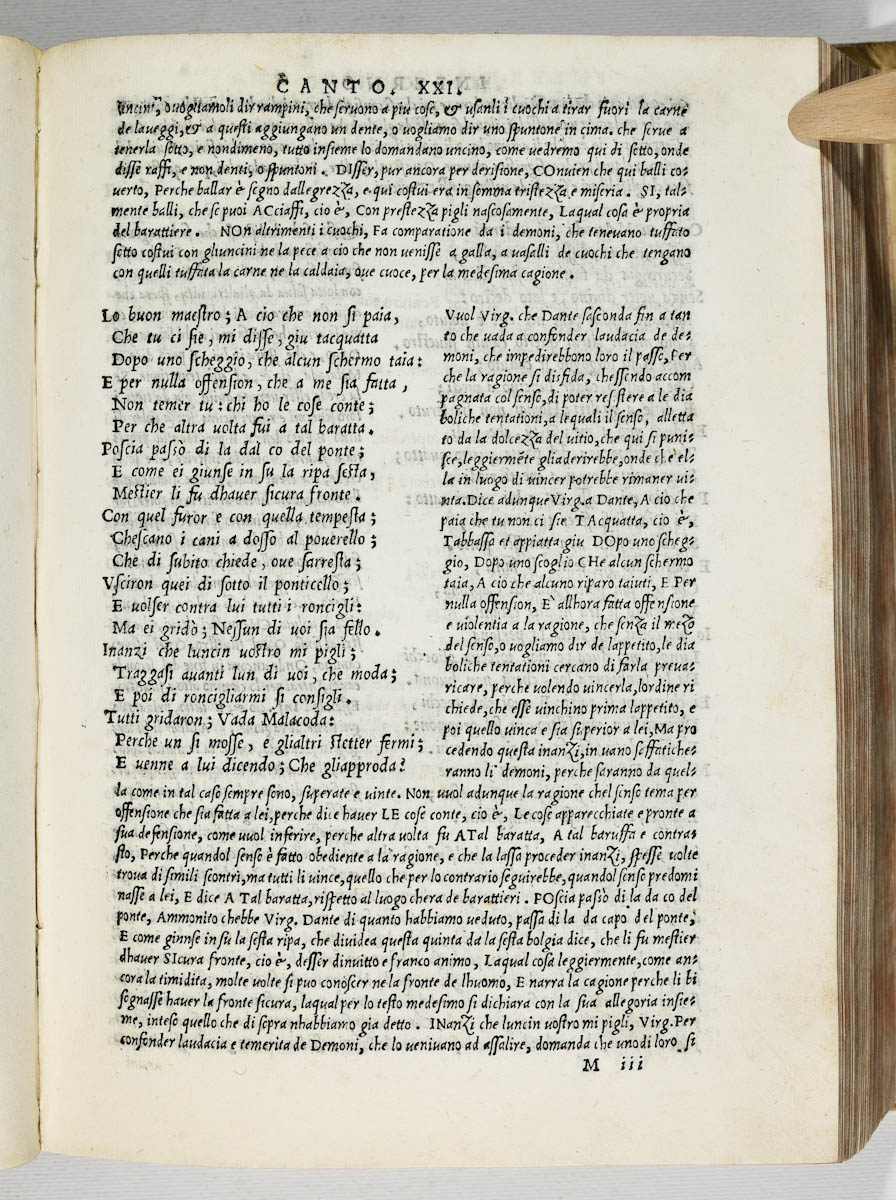 CANTO. XXI.
uncini, o vogliamoli dir rampini, che seruono a piu cose, & usanli i cuochi a tirar fuori la carne
de laueggi, & a questi aggiungano un dente, o vogliamo dir uno spuntone in cima. che serue a
tenerla sotto, e nondimeno, tutto insieme lo domandano uncino, come uedremo qui di sotto, onde
disse raffi, e non denti, o spuntoni. DIsser, pur ancora per derisione, COnuien che qui balli co-
uerto, Perche ballar è segno dallegrezza, e qui costui era in somma tristezza e miseria. SI, tal-
mente balli, che se puoi ACciaffi, cio è, Con prestezza pigli nascosamente, Laqual cosa è propria
del barattiere. NOn altrimenti i cuochi, Fa comparatione da i demoni, che teneuano tuffato
sotto costui con gliuncini ne la pece a cio che non uenisse a galla, a uasalli de cuochi che tengano
con quelli tuffata la carne ne la caldaia, oue cuoce, per la medesima cagione.
Lo buon maestro; A cio che non si paia,
Che tu ci sie, mi disse, giu tacquatta
Dopo uno scheggio, che alcun schermo taia:
E per nulla offension, che a me sia fatta,
Non temer tu: chi ho le cose conte;
Per che altra uolta fui a tal baratta.
Poscia passò di la dal co del ponte;
E come ei giunse in su la ripa sesta,
Mestier li fu dhauer sicura fronte.
Con quel furor e con quella tempesta;
Chescano i cani a dosso al pouerello;
Che di subito chiede, oue sarresta;
Vsciron quei di sotto il ponticello;
E uolser contra lui tutti i roncigli:
Ma ei gridò; Nessun di uoi sia fello.
Inanzi che luncin uostro mi pigli;
Traggasi auanti lun di uoi, che moda;
E poi di roncigliarmi si consigli.
Tutti gridaron; Vada Malacoda:
Perche un si mosse, e glialtri stetter fermi;
E uenne a lui dicendo; Che gliapproda?
Vuol Virg. che Dante sasconda fin a tan
to che uada a confonder laudacia de de-
moni, che impedirebbono loro il passo, Per
che la ragione si disfida, chessendo accom
pagnata col senso, di poter resistere a le dia
boliche tentationi, a lequali il senso, alletta
to da la dolcezza del uitio, che qui si puni-
sce, leggiermẽte gliaderirebbe, onde che el-
la in luogo di uincer potrebbe rimaner ui-
nta. Dice adunque Virg. a Dante, A cio che
paia che tu non ci sie TAcquatta, cio è,
Tabbassa et appiatta giu DOpo uno scheg-
gio, Dopo uno scoglio CHe alcun schermo
taia, A cio che alcuno riparo taiuti, E Per
nulla offension, E' allhora fatta offensione
e uiolentia a la ragione, che senza il mezo
del senso, o uogliamo dir de lappetito, le dia
boliche tentationi cercano di farla preua-
ricare, perche uolendo uincerla, lordine ri
chiede, che esse uinchino prima lappetito, e
poi quello uinca e sia superior a lei, Ma pro
cedendo questa inanzi, in uano saffatiche-
ranno li demoni, perche saranno da quel-
la come in tal caso sempre sono, superate e uinte. Non uuol adunque la ragione chel senso tema per
offensione che sia fatta a lei, perche dice hauer LE cose conte, cio è, Le cose apparecchiate e pronte a
sua defensione, come uuol inferire, perche altra uolta fu ATal baratta, A tal baruffa e contra-
sto, Perche quandol senso è fatto obediente a la ragione, e che la lassa proceder inanzi, spesse uolte
troua di simili scontri, ma tutti li uince, quello che per lo contrario seguirebbe, quandol senso predomi
nasse a lei, E dice A Tal baratta, rispetto al luogo chera de barattieri. POscia passò di la da co del
ponte, Ammonito chebbe Virg. Dante di quanto habbiamo ueduto, passa di la da capo del ponte,
E come giunse in su la sesta ripa, che diuidea questa quinta da la sesta bolgia dice, che li fu mestier
dhauer SIcura fronte, cio è, desser dinuitto e franco animo, Laqual cosa leggiermente, come an-
cora la timidita, molte uolte si puo conoscer ne la fronte de lhuomo, E narra la cagione perche li bi
sognasse hauer la fronte sicura, laqual per lo testo medesimo si dichiara con la sua allegoria insie-
me, inteso quello che di sopra nhabbiamo gia detto. INanzi che luncin uostro mi pigli, Virg. Per
confonder laudacia e temerita de Demoni, che lo ueniuano ad assalire, domanda che uno di loro si
M iii